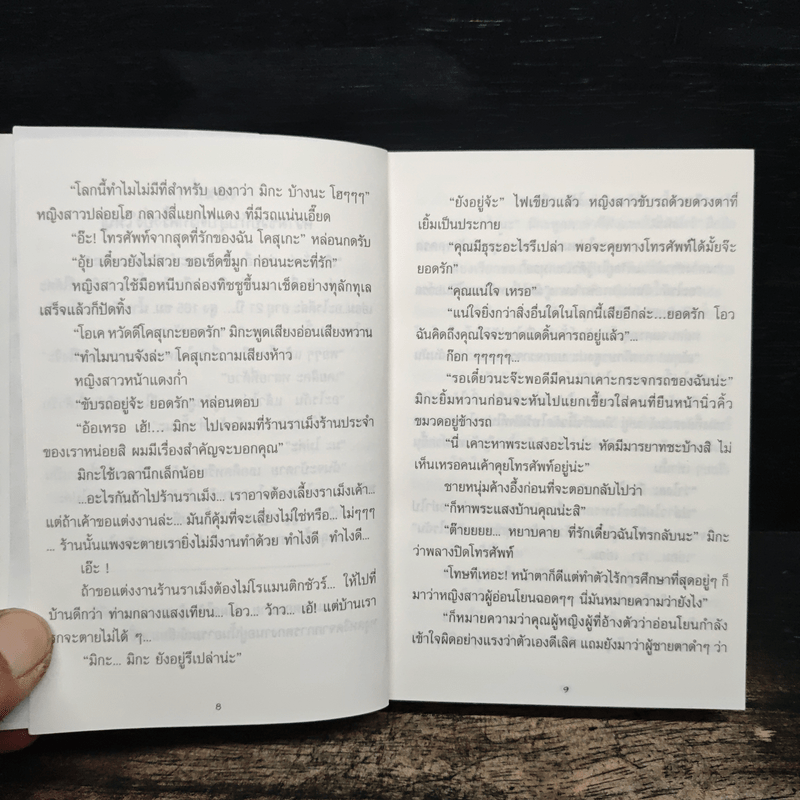 “โลกนี้ทำไมไม่มีที่สำหรับ เองาว่า มิกะ บ้างนะ โฮๆๆๆ”
หญิงสาวปล่อยโฮ กลางสี่แยกไฟแดง ที่มีรถแน่นเอี๊ยด
“อ๊ะ! โทรศัพท์จากสุดที่รักของฉัน โคสุเกะ” หล่อนกดรับ
“อุ้ย เดี๋ยวยังไม่สวย ขอเช็ดขี้มูก ก่อนนะคะที่รัก”
หญิงสาวใช้มือหนีบกล่องทิชชูขึ้นมาเช็ดอย่างทุลักทุเล
เสร็จแล้วก็ปัดทิ้ง
“โอเค หวัดดีโคสุเกะยอดรัก” มิกะพูดเสียงอ่อนเสียงหวาน
“ทำไมนานจังล่ะ” โคสุเกะถามเสียงห้าว
หญิงสาวหน้าแดงก่ำ
“ขับรถอยู่จ้ะ ยอดรัก” หล่อนตอบ
“อ้อเหรอ เฮ้!... มิกะ ไปเจอผมที่ร้านราเม็งร้านประจำ
ของเราหน่อยสิ ผมมีเรื่องสำคัญจะบอกคุณ”
มิกะใช้เวลานึกเล็กน้อย
...อะไรกันถ้าไปร้านราเม็ง... เราอาจต้องเลี้ยงราเม็งเค้า...
แต่ถ้าเค้าขอแต่งงานล่ะ... มันก็คุ้มที่จะเสี่ยงไม่ใช่หรือ... ไม่ๆๆๆ
... ร้านนั้นแพงจะตายเรายิ่งไม่มีงานทำด้วย ทำไงดี ทำไงดี...
เอ๊ะ !
ถ้าขอแต่งงานร้านราเม็งต้องไม่โรแมนติกชัวร์... ให้ไปที่
บ้านดีกว่า ท่ามกลางแสงเทียน... โอว... ว้าว... เอ้! แต่บ้านเรา
รกจะตายไม่ได้ ๆ...
“มิกะ... มิกะ ยังอยู่รึเปล่าน่ะ”
8
“ยังอยู่จ้ะ” ไฟเขียวแล้ว หญิงสาวขับรถด้วยดวงตาที่
เยิ้มเป็นประกาย
“คุณมีธุระอะไรรึเปล่า พอจะคุยทางโทรศัพท์ได้มั้ยจ๊ะ
ยอดรัก”
“คุณแน่ใจ เหรอ”
“แน่ใจยิ่งกว่าสิ่งอื่นใดในโลกนี้เสียอีกล่ะ...ยอดรัก โอว
ฉันคิดถึงคุณใจจะขาดแดดิ้นคารถอยู่แล้ว”...
ก๊อก ๆๆๆๆๆ...
“รอเดี๋ยวนะจ๊ะพอดีมีคนมาเคาะกระจกรถของฉันน่ะ”
มิกะยิ้มหวานก่อนจะหันไปแยกเขี้ยวใส่คนที่ยืนหน้านิ่วคิ้ว
ขมวดอยู่ข้างรถ
“นี่ เคาะหาพระแสงอะไรน่ะ หัดมีมารยาทซะบ้างสิ ไม่
เห็นเหรอคนเค้าคุยโทรศัพท์อยู่น่ะ”
ชายหนุ่มค้างอึ้งก่อนที่จะตอบกลับไปว่า
“ก็หาพระแสงบ้านคุณน่ะสิ”
“ต๊ายยยย... หยาบคาย ที่รักเดี๋ยวฉันโทรกลับนะ” มิกะ
ว่าพลางปิดโทรศัพท์
“โทษทีเหอะ! หน้าตาก็ดีแต่ทำตัวไร้การศึกษาที่สุดอยู่ๆ ก็
มาว่าหญิงสาวผู้อ่อนโยนฉอดๆๆ นี่มันหมายความว่ายังไง”
“ก็หมายความว่าคุณผู้หญิงผู้ที่อ้างตัวว่าอ่อนโยนกำลัง
เข้าใจผิดอย่างแรงว่าตัวเองดีเลิศ แถมยังมาว่าผู้ชายตาดำๆ ว่า
9